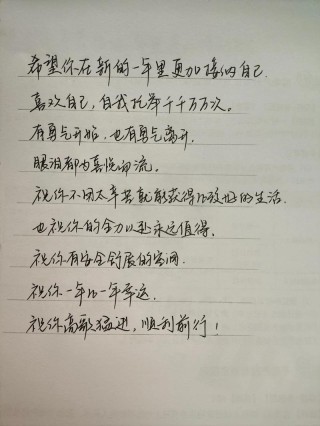 希望你在新的一年里更加接纳自己.
喜欢自己，自我托举千千万万次。
有勇气开始，也有勇气离开.
眼泪都为喜悦而流。
祝你不用太辛苦就能获得比较好的生活.
也祝你的全力以赴永远值得.
祝你有安全舒展的空间.
祝你一年比一年幸运.
祝你高歌猛进，顺利前行！